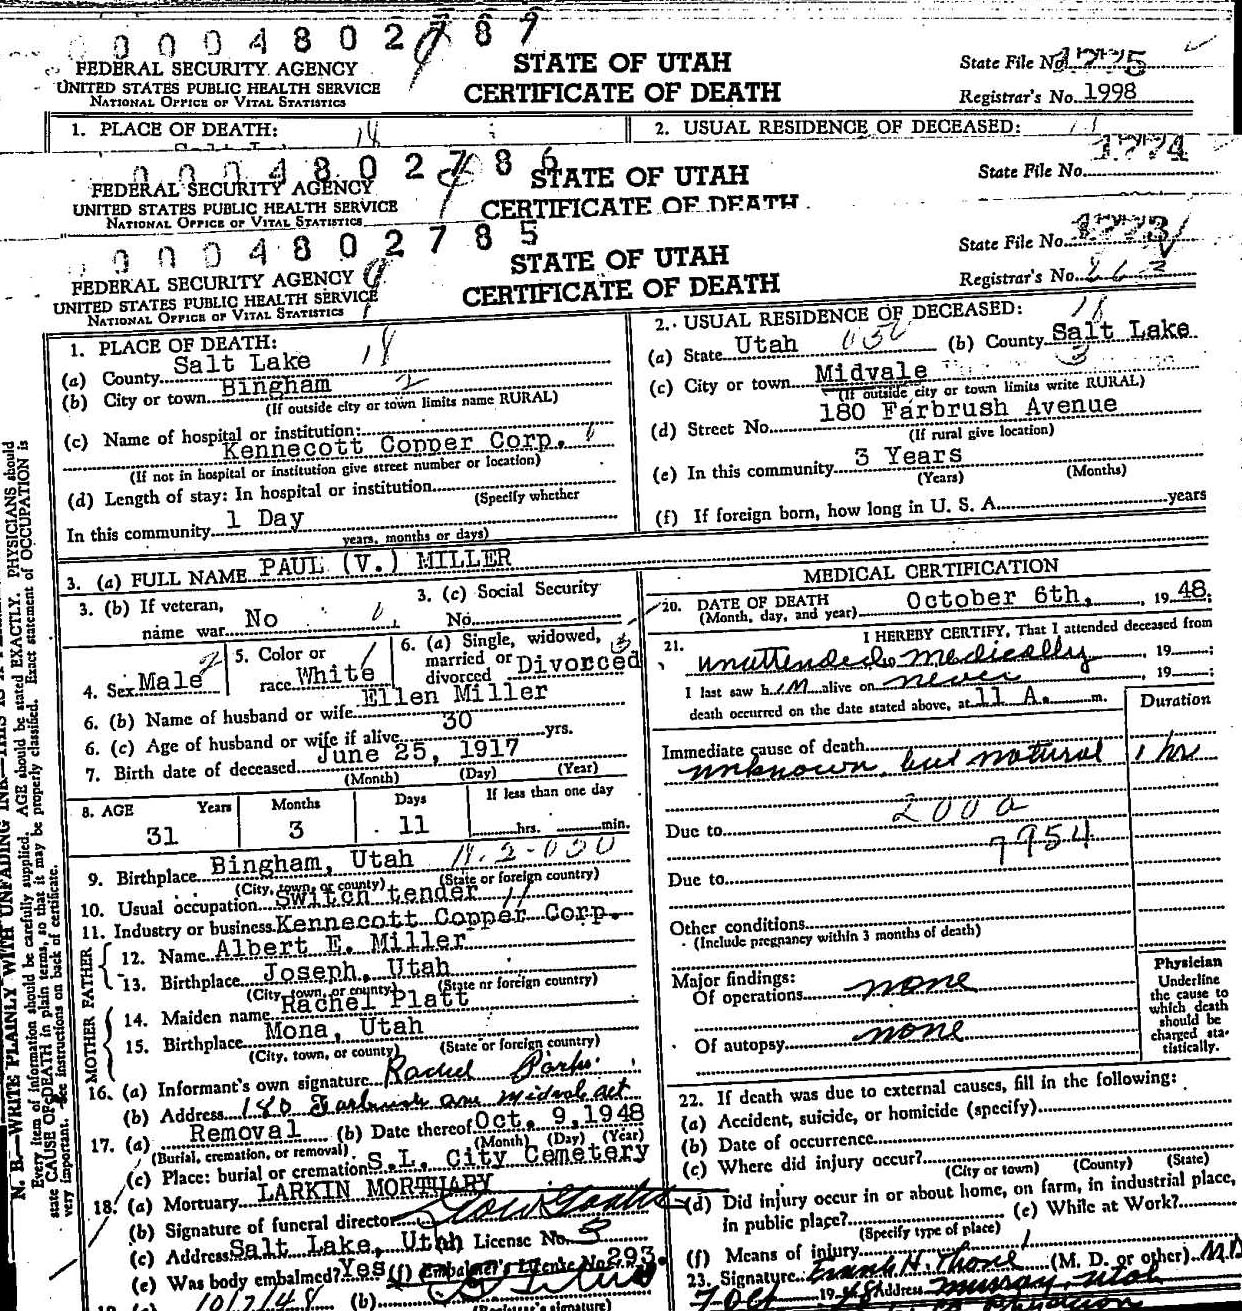 0 0 0 4 8 0 2 7 8 7
FEDERAL SECURITY AGENCY
UNITED STATES PUBLIC HEALTH SERVICE
NATIONAL OFFICE OF VITAL STATISTICS
STATE OF UTAH
CERTIFICATE OF DEATH
State File No. 1775
Registrar's No. 1998
1. PLACE OF DEATH: 18
2. USUAL RESIDENCE OF DECEASED:
0 0 0 4 8 0 2 7 8 6
FEDERAL SECURITY AGENCY
UNITED STATES PUBLIC HEALTH SERVICE
NATIONAL OFFICE OF VITAL STATISTICS
STATE OF UTAH
CERTIFICATE OF DEATH
State File No. 1774
0 0 0 4 8 0 2 7 8 5
FEDERAL SECURITY AGENCY
UNITED STATES PUBLIC HEALTH SERVICE
NATIONAL OFFICE OF VITAL STATISTICS
STATE OF UTAH
CERTIFICATE OF DEATH
State File No. 1773
Registrar's No.
1. PLACE OF DEATH:
(a) County Salt Lake 18
(b) City or town Bingham 2
(If outside city or town limits name RURAL)
(c) Name of hospital or institution:
Kennecott Copper Corp.
(If not in hospital or institution give street number or location)
(d) Length of stay: In hospital or institution
(Specify whether
In this community 1 Day
years, months or days)
2. USUAL RESIDENCE OF DECEASED: 18
(a) State Utah 050 (b) County Salt Lake
(c) City or town Midvale 3
(If outside city or town limits write RURAL)
(d) Street No. 180 Farbrush Avenue
(If rural give location)
(e) In this community 3 Years
(Years) (Months)
(f) If foreign born, how long in U. S. A. years
3. (a) FULL NAME PAUL (V.) MILLER
3. (b) If veteran,
name war No
3. (c) Social Security
No.
4. Sex Male 2
5. Color or
race White 1
6. (a) Single, widowed, 3
married or
divorced Divorced
6. (b) Name of husband or wife Ellen Miller
6. (c) Age of husband or wife if alive 30 yrs.
7. Birth date of deceased June 25, 1917
(Month) (Day) (Year)
8. AGE Years Months Days If less than one day
31 3 11 hrs. min.
9. Birthplace Bingham, Utah
(City, town, or county) (State or foreign country)
10. Usual occupation Switch tender 11
11. Industry or business Kennecott Copper Corp.
FATHER
12. Name Albert E. Miller
13. Birthplace Joseph, Utah
(City, town, or county) (State or foreign country)
MOTHER
14. Maiden name Rachel Platt
15. Birthplace Mona, Utah
(City, town, or county) (State or foreign country)
16. (a) Informant's own signature Rachel Parks
(b) Address 180 Farbrush Ave Midvale Ut
17. (a) Removal (b) Date thereof Oct. 9, 1948
(Burial, cremation, or removal) (Month) (Day) (Year)
(c) Place: burial or cremation S.L. City Cemetery
18. (a) Mortuary LARKIN MORTUARY
(b) Signature of funeral director
(c) Address Salt Lake, Utah (d) License No. 5
(e) Was body embalmed? Yes (f) Embalmer's License No. 293
10/7/48 (b)
(Registrar's signature)
MEDICAL CERTIFICATION
20. DATE OF DEATH
(Month, day, and year) October 6th, , 19 48;
21. I HEREBY CERTIFY, That I attended deceased from
unattended medically , 19 ;
I last saw him alive on never , 19 ;
death occurred on the date stated above, at 11 A. m.
Duration
Immediate cause of death
unknown, but natural 1 hr
200a
Due to
7954
Due to
Other conditions
(Include pregnancy within 3 months of death)
Major findings:
Of operations none
Of autopsy none
Physician
Underline
the cause to
which death
should be
charged sta-
tistically.
22. If death was due to external causes, fill in the following:
(a) Accident, suicide, or homicide (specify)
(b) Date of occurrence
(c) Where did injury occur?
(City or town) (County) (State)
(d) Did injury occur in or about home, on farm, in industrial place,
in public place? (e) While at Work?
(Specify type of place)
(f) Means of injury
23. Signature Frank H. Thone (M. D. or other) M.D.
7 Oct 19 48 Address Murray, Utah
N. B.—WRITE PLAINLY WITH UNFADING INK—THIS IS A
Every item of information should be carefully supplied. AGE should be stated EXACTLY. PHYSICIANS should
state CAUSE OF DEATH in plain terms, so that it may be properly classified. Exact statement of OCCUPATION is
very important. See instructions on back of certificate.